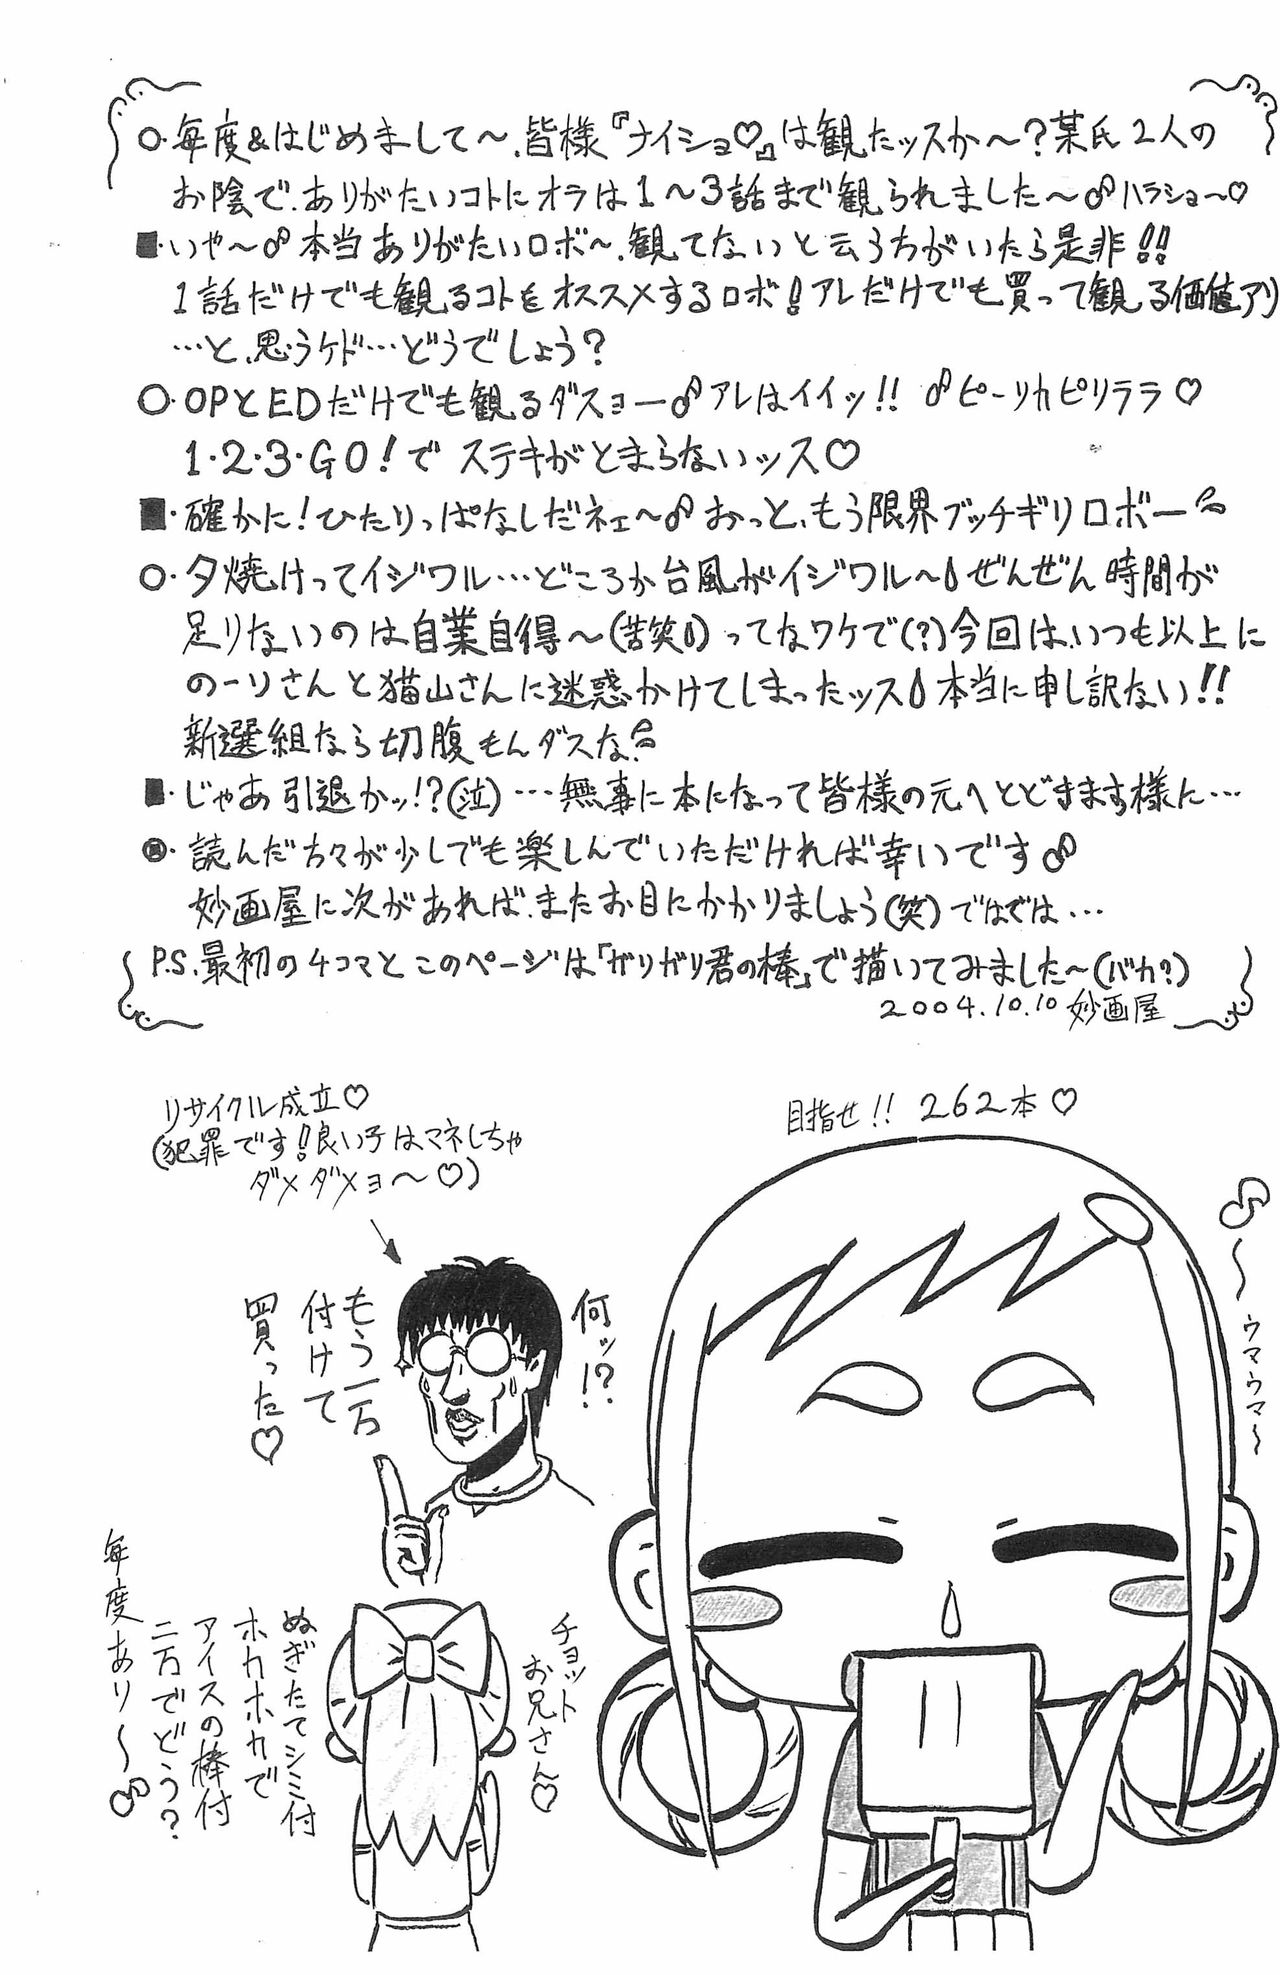 ○・毎度&はじめまして〜、皆様『ナイショ♡』は観たッスか〜?某氏2人の
お陰で、ありがたいコトにオラは1〜3話まで観られました〜♪ハラショ〜♡
■・いや〜♪本当ありがたいロボ〜、観てないと云う方がいたら是非!!
1話だけでも観るコトをオススメするロボ!アレだけでも買って観る価値アリ
…と、思うケド…どうでしょう?
○・OPとEDだけでも観るダスョー♪アレはイイッ!! ♪ピーリカピリララ♡
1・2・3・GO!で ステキがとまらないッス♡
■・確かに!ひたりっぱなしだネェ〜♪おっと、もう限界ブッチギリロボー
○・夕焼けってイジワル…どころか台風がイジワル〜ぜんぜん時間が
足りないのは自業自得〜(苦笑)ってなワケで(?)今回は、いつも以上に
のーりさんと猫山さんに迷惑かけてしまったッス本当に申し訳ない!!
新選組なら切腹もんダスな
■・じゃあ引退かッ!?(泣)…無事に本になって皆様の元へとどきます様に…
・読んだ方々が少しでも楽しんでいただければ幸いです♪
妙画屋に次があれば、またお目にかかりましょう(笑)ではでは…
P.S.最初の4コマとこのページは「ガリガリ君の棒」で描いてみました〜(バカ?)
2004.10.10 妙画屋
リサイクル成立♡
(犯罪です!良い子はマネしちゃ
ダメダメョ〜♡)
目指せ!! 262本♡
♪〜ウマウマ〜
何ッ!?
もう一万
付けて
買った♡
チョット
お兄さん♡
ぬぎたてシミ付
ホカホカで
アイスの棒付
二万でどう?
毎度あり〜♪